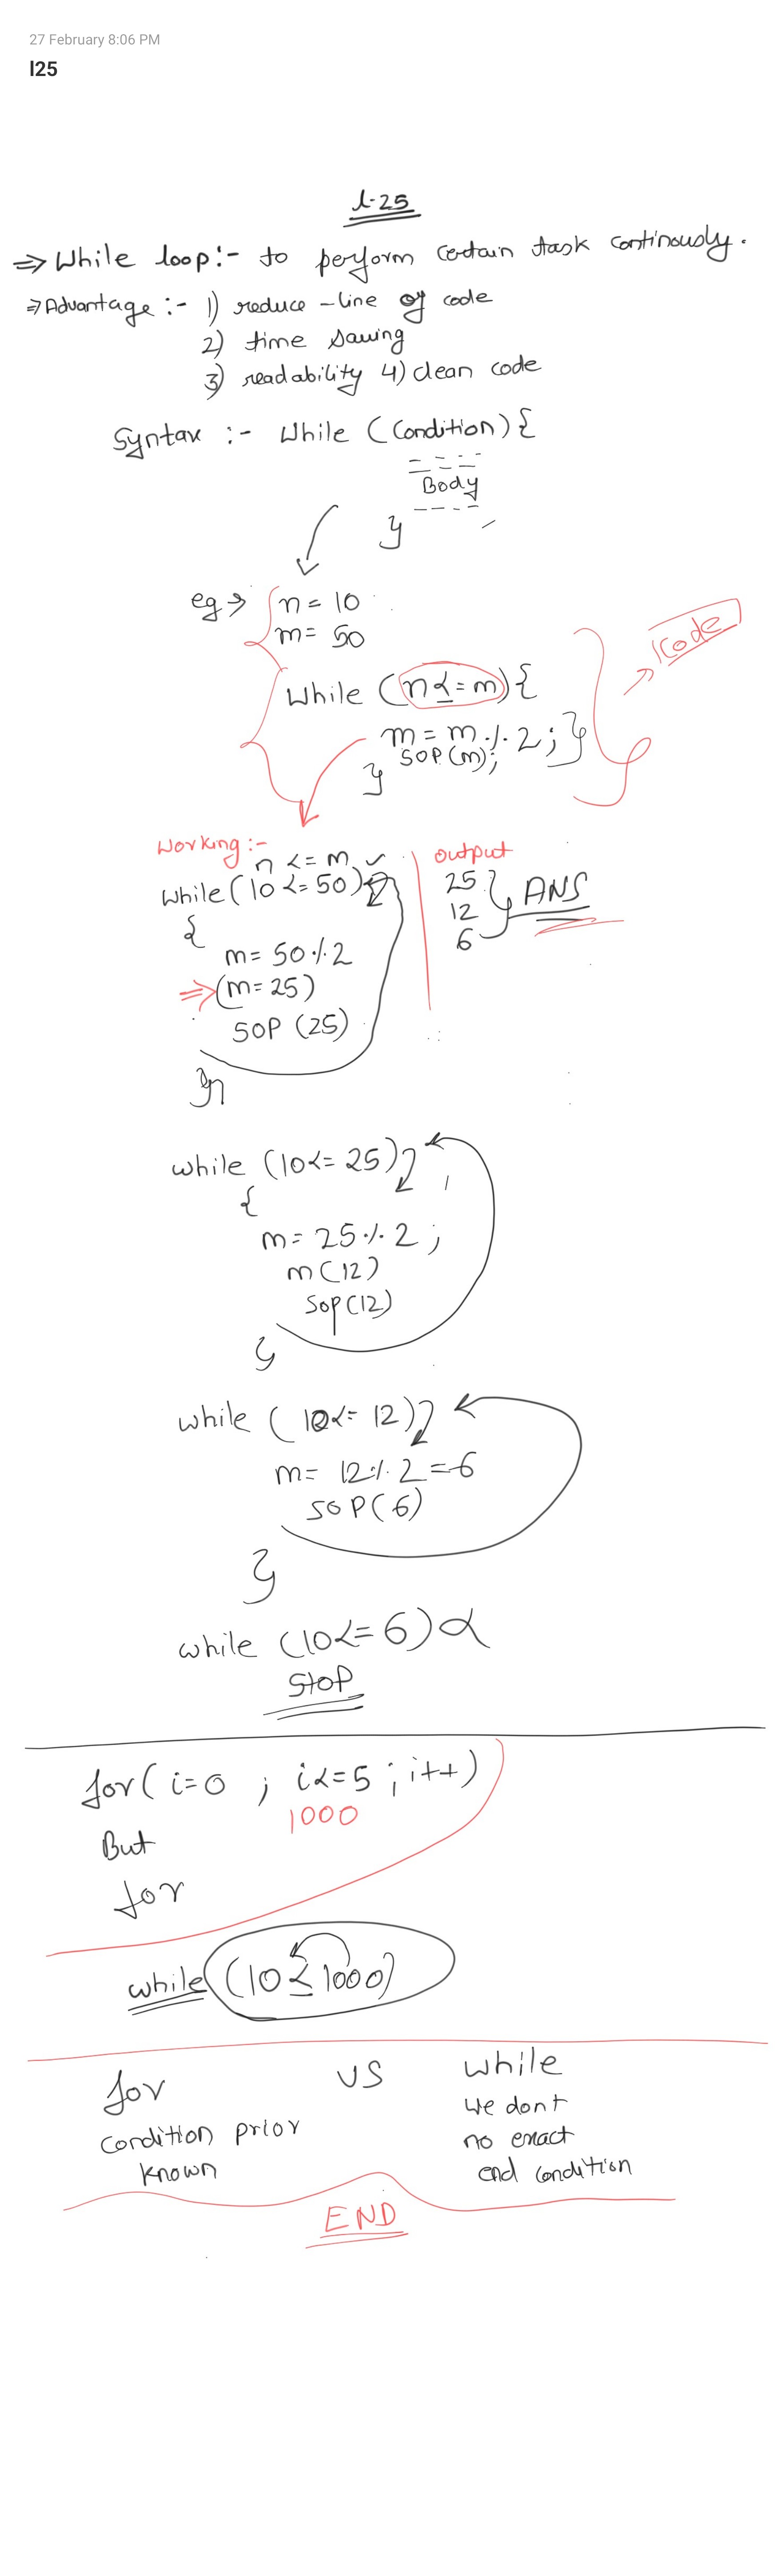 27 February 8:06 PM
l25
L-25
⇒ While loop:- to perform certain task continously.
⇒ Advantage :- 1) reduce - line of code
2) time saving
3) readability 4) clean code
Syntax :- While (Condition) {
Body
}
eg → n = 10
m = 50
While (n <= m) {
m = m % 2 ; }
SOP (m);
}
Code
Working :-
n <= m ✓
while (10 <= 50)
{
m = 50 % 2
⇒ (m = 25)
SOP (25)
}
output
25
12
6
ANS
while (10 <= 25)
{
m = 25 % 2 ;
m (12)
Sop (12)
}
while ( 10 <= 12)
m = 12 % 2 = 6
SOP ( 6 )
}
while (10 <= 6)
Stop
for ( i = 0 ; i <= 5 ; i++ )
1000
But
for
while (10 ≤ 1000)
for VS while
Condition prior
known
We dont
no exact
end condition
END